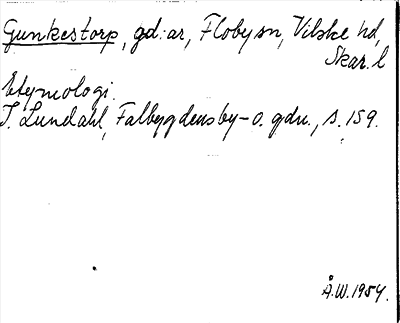 Gunkestorp, gd:ar, Floby sn, Vilske hd,
Skar. l
Etymologi.
I. Lundahl, Falbygdens by- o. gdn., s. 159.
Å.W. 1954.